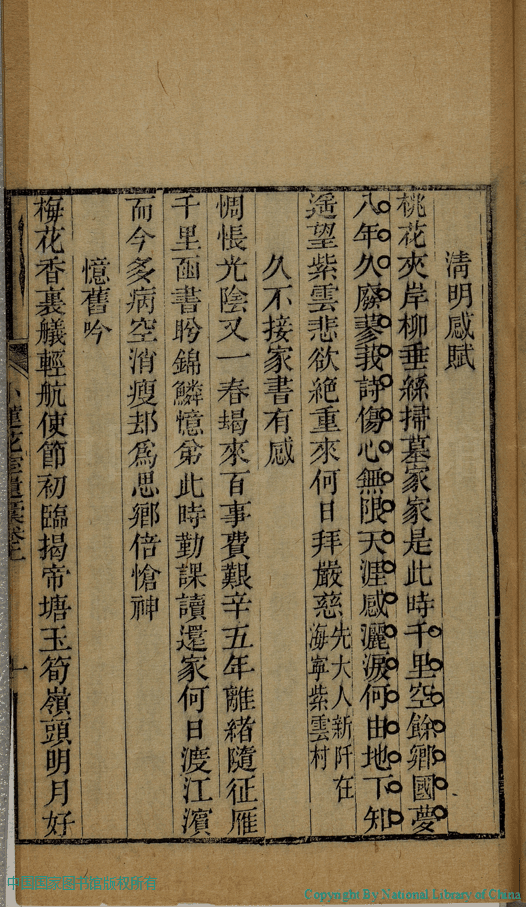 淸明感賦
桃花夾岸柳垂絲掃墓家家是此時千里空餘鄕國夢
八年久廢蓼莪詩傷心無限天涯感灑淚何由地下知
遥望紫雲悲欲絕重來何日拜嚴慈先大人新阡在
海寧紫雲村
久不接家書有感
惆悵光陰又一春朅來百事費艱辛五年離緒隨征雁
千里函書盻錦鱗憶弟此時勤課讀還家何日渡江濱
而今多病空消瘦却爲思鄕倍愴神
憶舊吟
梅花香裏艤輕航使節初臨揭帝塘玉筍嶺頭明月好
小蓮花室遺稾卷上
一
中国国家图书馆版权所有
Copyright By National Library of China